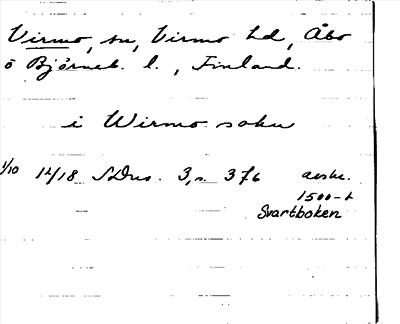 Virmo, sn, Virmo hd, Åbo
o Björneb. l., Finland.
i Wirmo soku
1/10 14/18 SDns. 3, s. 376 avskr.
1500-t
Svartboken